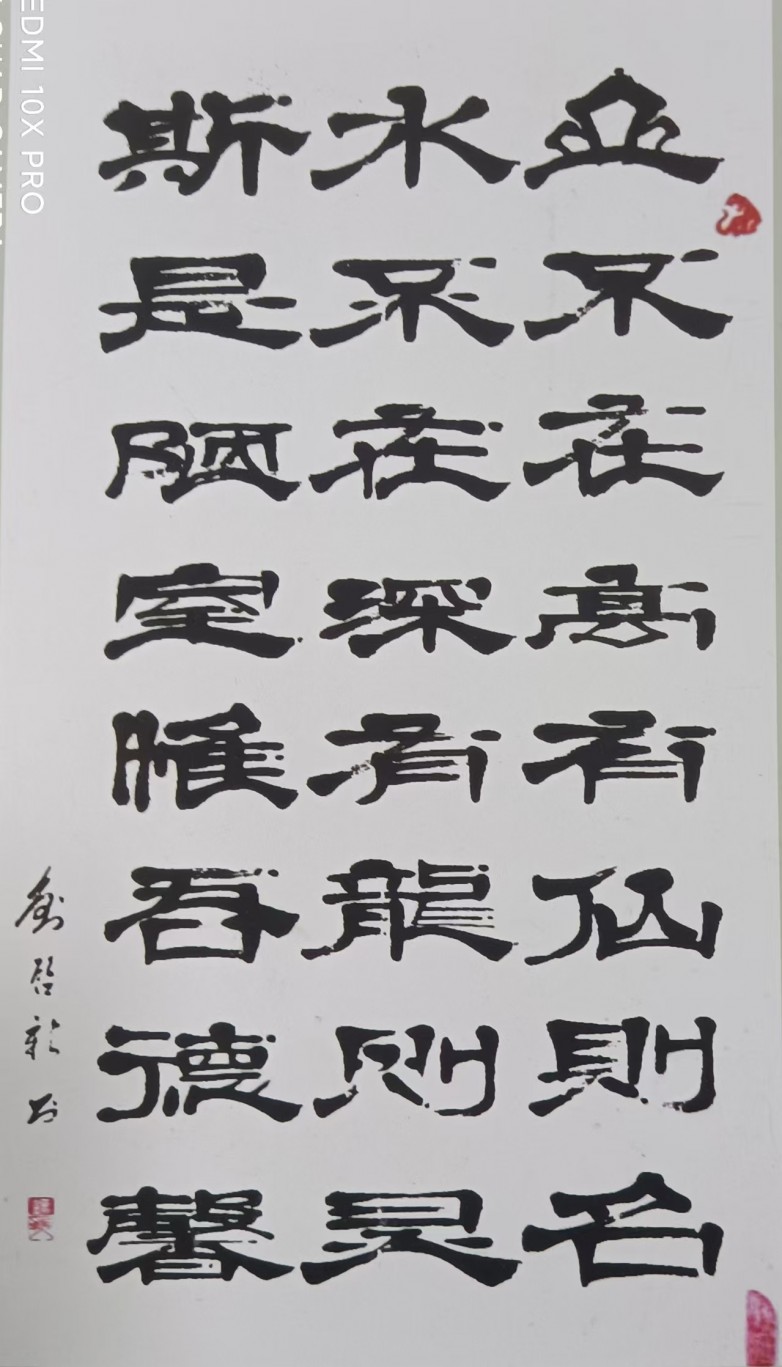 山不在高有仙則名
水不在深有龍则灵
斯是陋室惟吾德馨
劉啓新书
REDMI 10X PRO